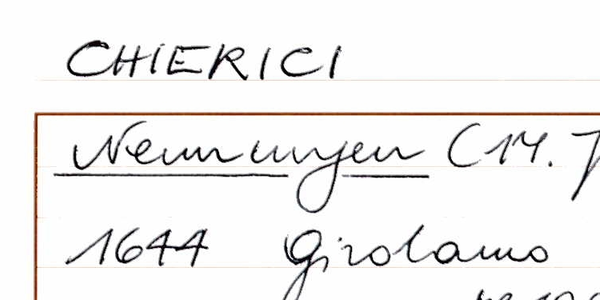 CHIERICI
Nennungen (17. J
1644 Girolamo